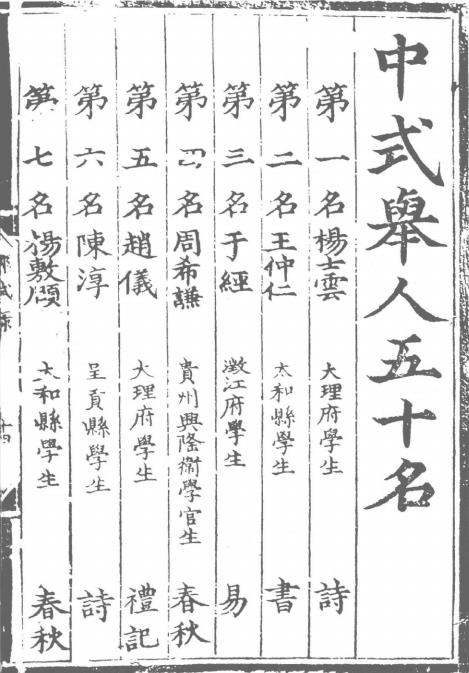 中式舉人五十名
第一名楊士雲 大理府學生 詩
第二名王仲仁 太和縣學生 書
第三名于經 澂江府學生 易
第四名周希謙 貴州興隆衞學官生 春秋
第五名趙儀 大理府學生 禮記
第六名陳淳 呈貢縣學生 詩
第七名楊敷 太和縣學生 春秋